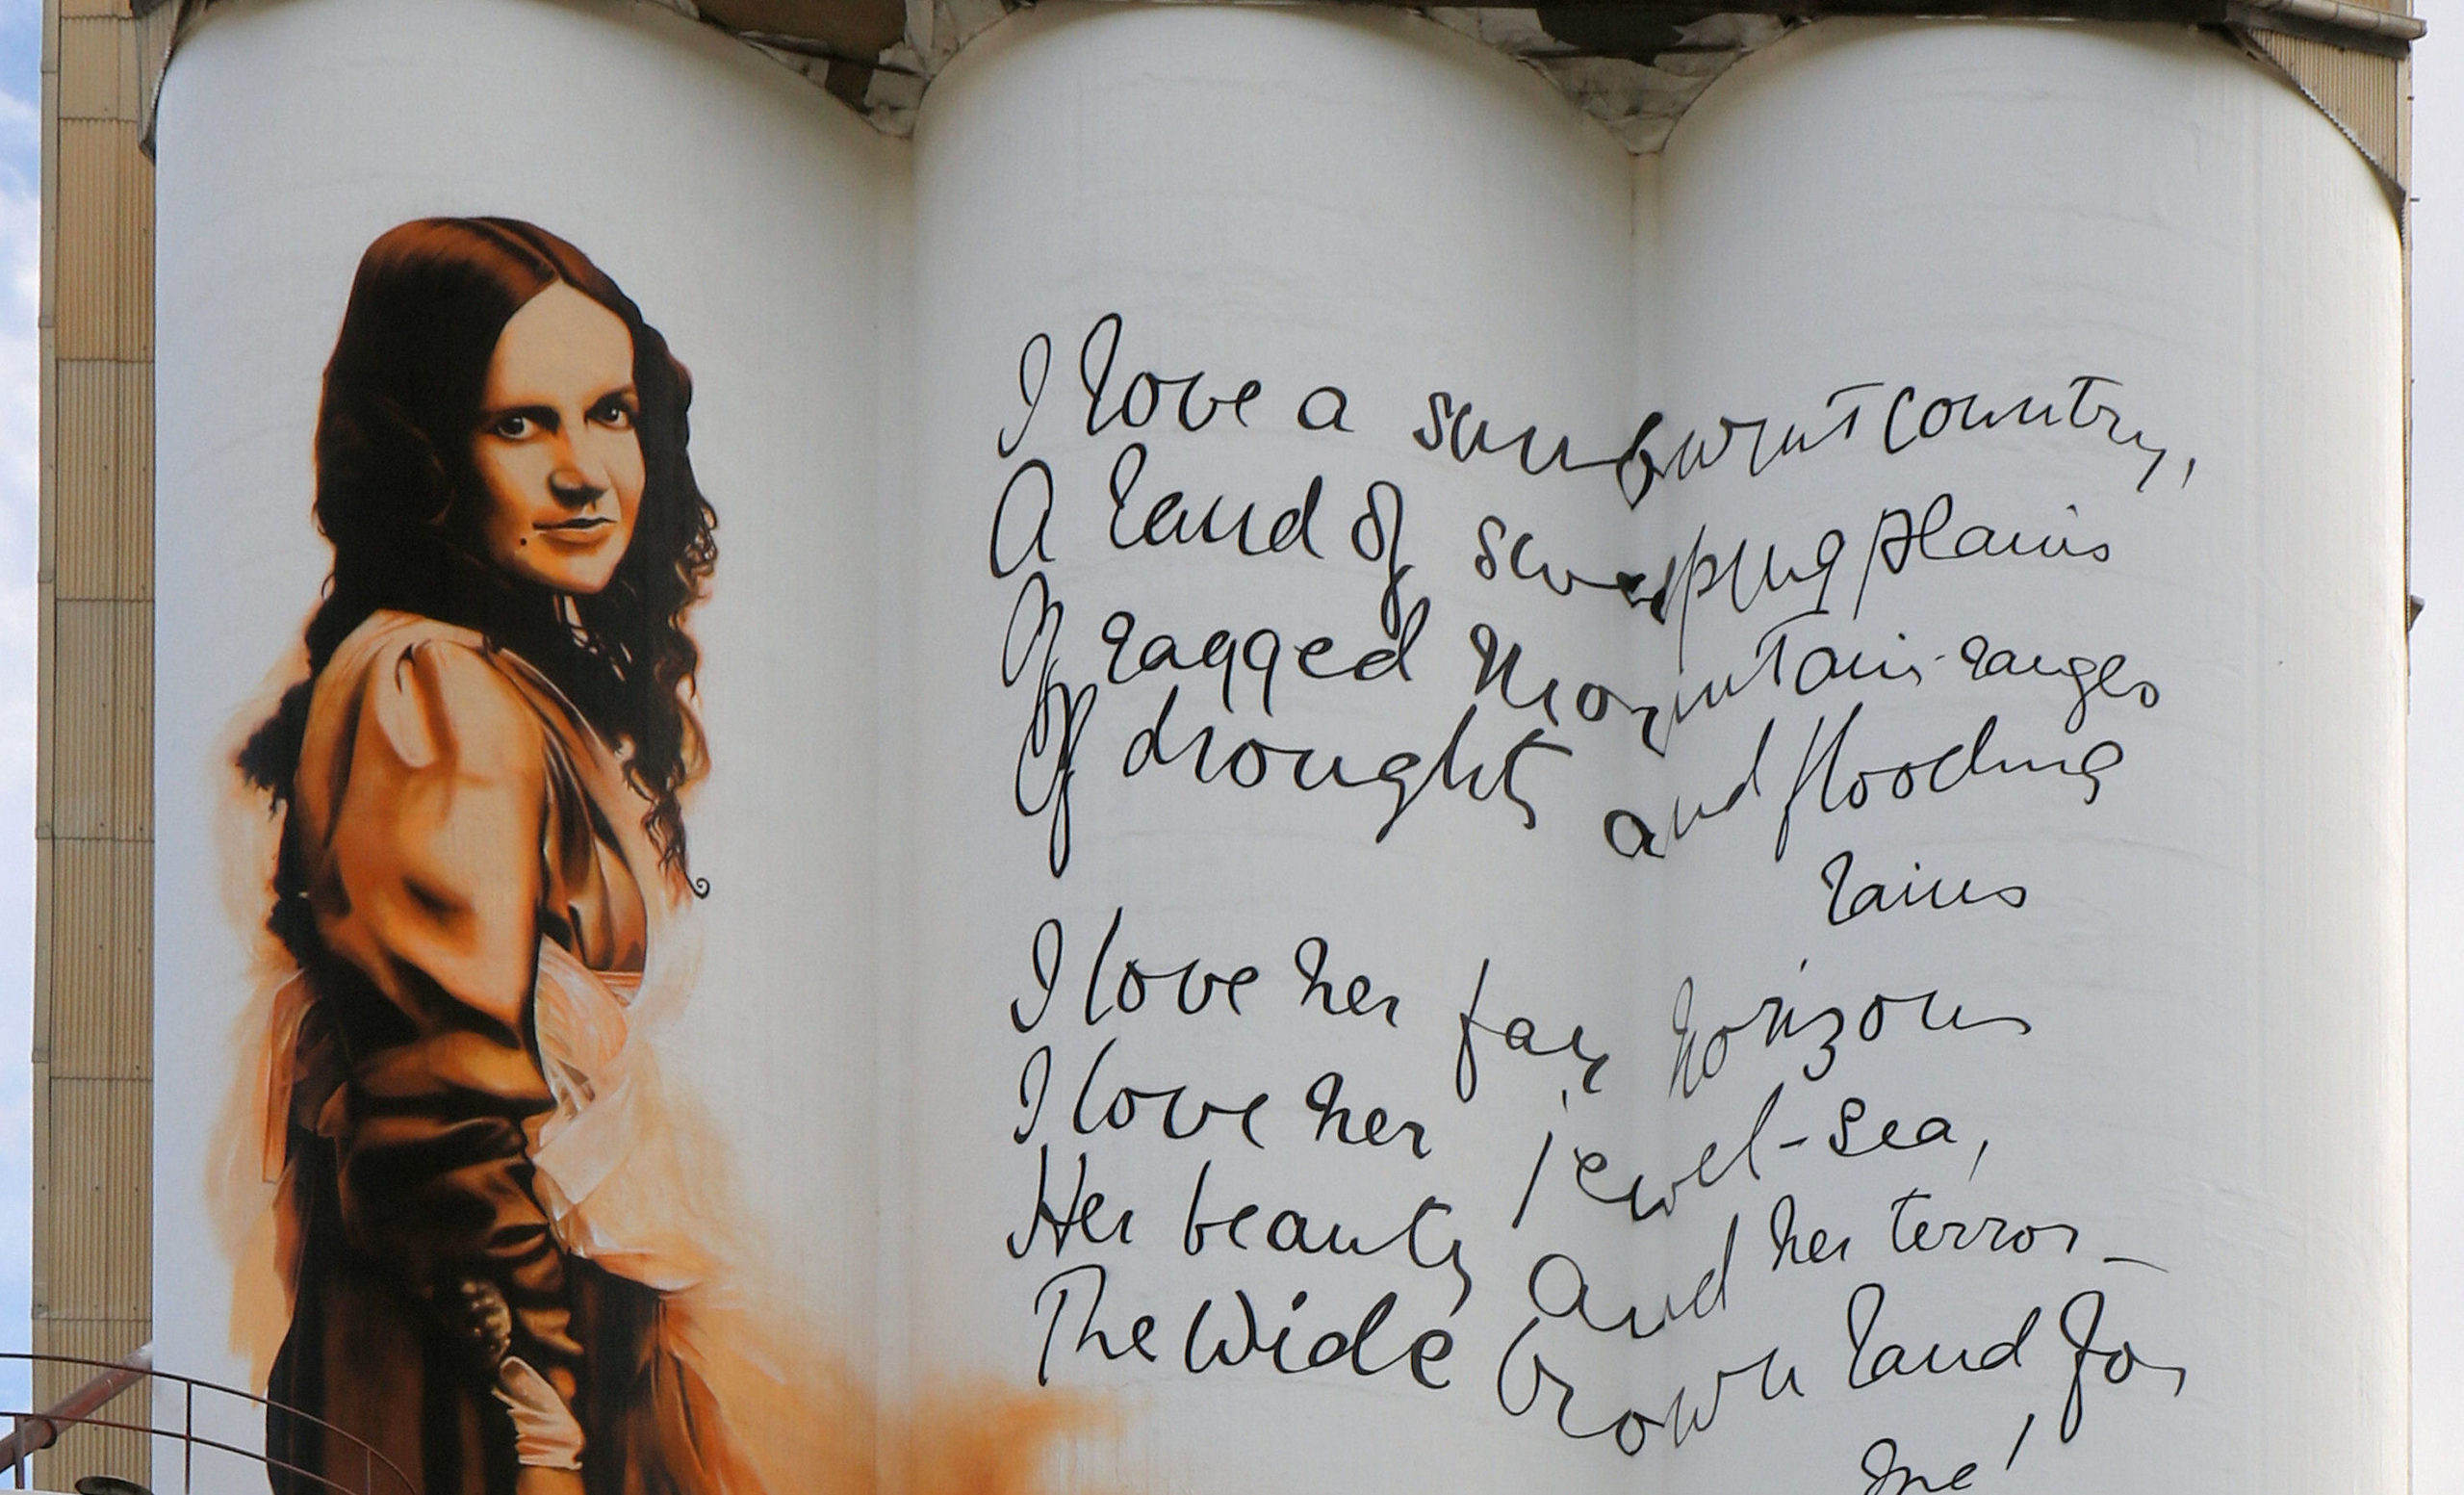 I love a sunburnt country,
A land of sweeping plains
Of ragged mountain-ranges
Of droughts and flooding
rains
I love her far horizons
I love her jewel-sea,
Her beauty and her terror –
The Wide brown land for
me!